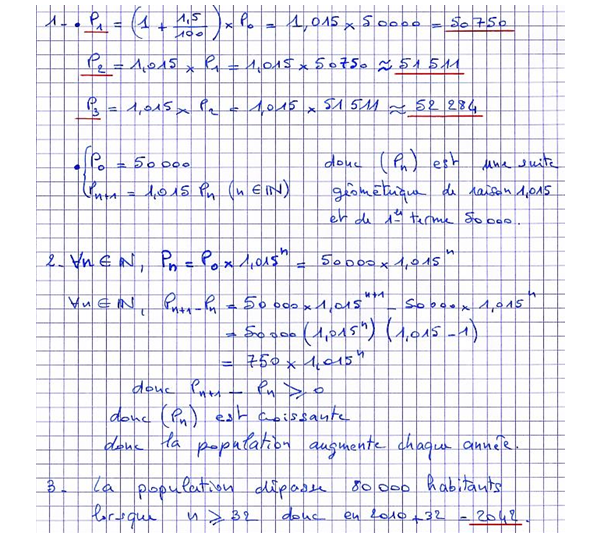 1- • P₁ = (1 + 1,5/100) × P₀ = 1,015 × 50000 = 50750
P₂ = 1,015 × P₁ = 1,015 × 50750 ≈ 51 511
P₃ = 1,015 × P₂ = 1,015 × 51 511 ≈ 52 284
• { P₀ = 50 000 donc (Pₙ) est une suite
Pₙ₊₁ = 1,015 Pₙ (n ∈ ℕ) géométrique de raison 1,015
et de 1er terme 50000.
2- ∀n ∈ ℕ, Pₙ = P₀ × 1,015ⁿ = 50000 × 1,015ⁿ
∀n ∈ ℕ, Pₙ₊₁ - Pₙ = 50000 × 1,015ⁿ⁺¹ - 50000 × 1,015ⁿ
= 50000 (1,015ⁿ) (1,015 - 1)
= 750 × 1,015ⁿ
donc Pₙ₊₁ - Pₙ ⩾ 0
donc (Pₙ) est croissante
donc la population augmente chaque année.
3- La population dépasse 80 000 habitants
lorsque n ⩾ 32 donc en 2010 + 32 = 2042.